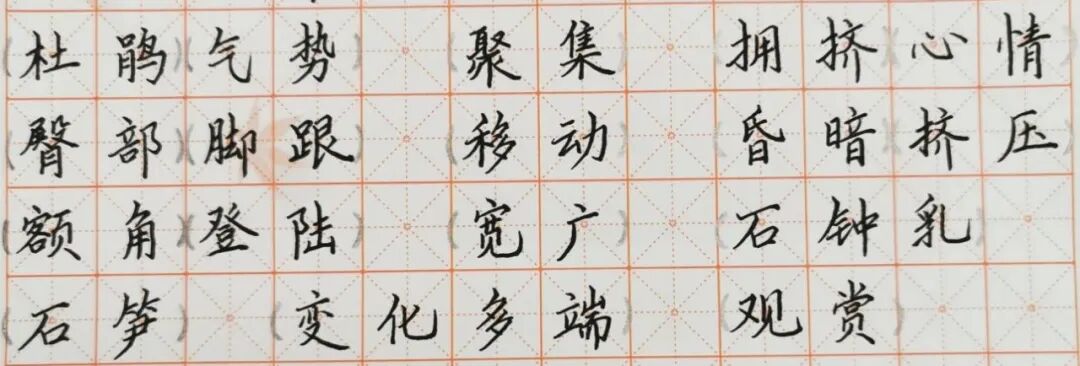 (杜鹃)(气势) (聚集) (拥挤)(心情
(臀部)(脚跟) (移动) (昏暗)(挤压
(额角)(登陆) (宽广) (石钟乳)
(石笋) (变化多端) (观赏)